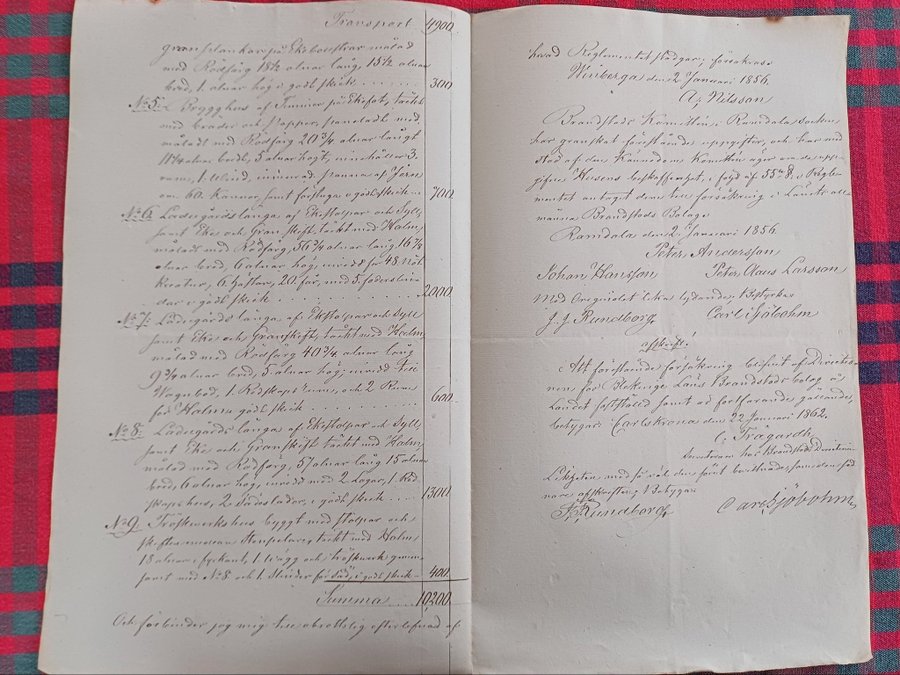 Transport 4900.
granplankar på Ekebolstrar målad
med Rödfärg 18½ alnar lång, 15½ alnar
bred, 1. alnar hög i godt skick 300
No 5. 1. Brygghus af Timmer på Ekefot, täckt
med bräder och papper, paneladt med
måladt med Rödfärg 20¾ alnar långt
11¼ alnar bredt, 5 alnar högt, innehåller 3.
rum, 1. inmurad panna af Jern
om 60. Kannor samt förstuga i godt skick 700
No 6. Ladugårds länga af Ekestolpar och Syll,
samt Eke och Granskift täckt med Halm,
målad med Rödfärg, 56¾ alnar lång 16⅞
alnar bred, 6 alnar hög, inredd för 48. Nöt
Kreatur, 6. Hästar, 20. får, med 5. foders
dar i godt skick 2000
No 7. Ladugårds länga af Ekstolpar och Syll
samt Eke och Granskift, täckt med Halm,
målad med Rödfärg 40¾ alnar lång
9¾ alnar bred, 5 alnar hög; inredd till
Vagnbod, 1. Redskaps rum, och 2 Rum
för Halm i godt skick 600
No 8. Ladugårds länga af Ekstolpar och Syll,
samt Eke och Granskift täckt med Halm,
målad med Rödfärg, 57 alnar lång 15 alnar
bred, 6 alnar hög, inredd med 2. Logar, 1. Red
skapshus, 2. Lador, i godt skick 1300
No 9. Tröskverkshus byggt med stolpar och
skiften emellan täckt med Halm
13 alnar i fyrkant, 1. Vägg och tröskverk
samt med No 8 och 1. för Säd, i godt skick 400.
Summa 10,200.
Och förbinder jag mig till obrottslig efterlefnad af
hvad Reglementet stadgar; försäkras
Winberga den 2 Januari 1856.
A. Nilsson
Brandstods Komittén i Ramdala socken
har granskat förestående uppgifter, och har med
stöd af den Kännedom Komittén äger om de upp-
gifne Husens beskaffenhet, i följd af 55 § i Regle-
mentet antagit dem till försäkring i Länets all-
männa Brandstods Bolag.
Ramdala den 2 Januari 1856.
Peter Andersson
Johan Hansson Peter Claus Larsson
Med Originalet lika lydande, bestyrka
J. J. Rundborg Carl Sjöbohm
afskrift.
Att förestående försäkring blifvit af Direktio-
nen för Blekinge Läns Brandstods bolag å
Landet fastställd samt är fortfarande gällande,
betygar Carlskrona den 22 Januari 1862.
C. Trägardh
Sekreterare hos Brandstods Direktionen
Likheten med så väl den förut
nare afskriften betyga
J. J. Rundborg Carl Sjöbohm